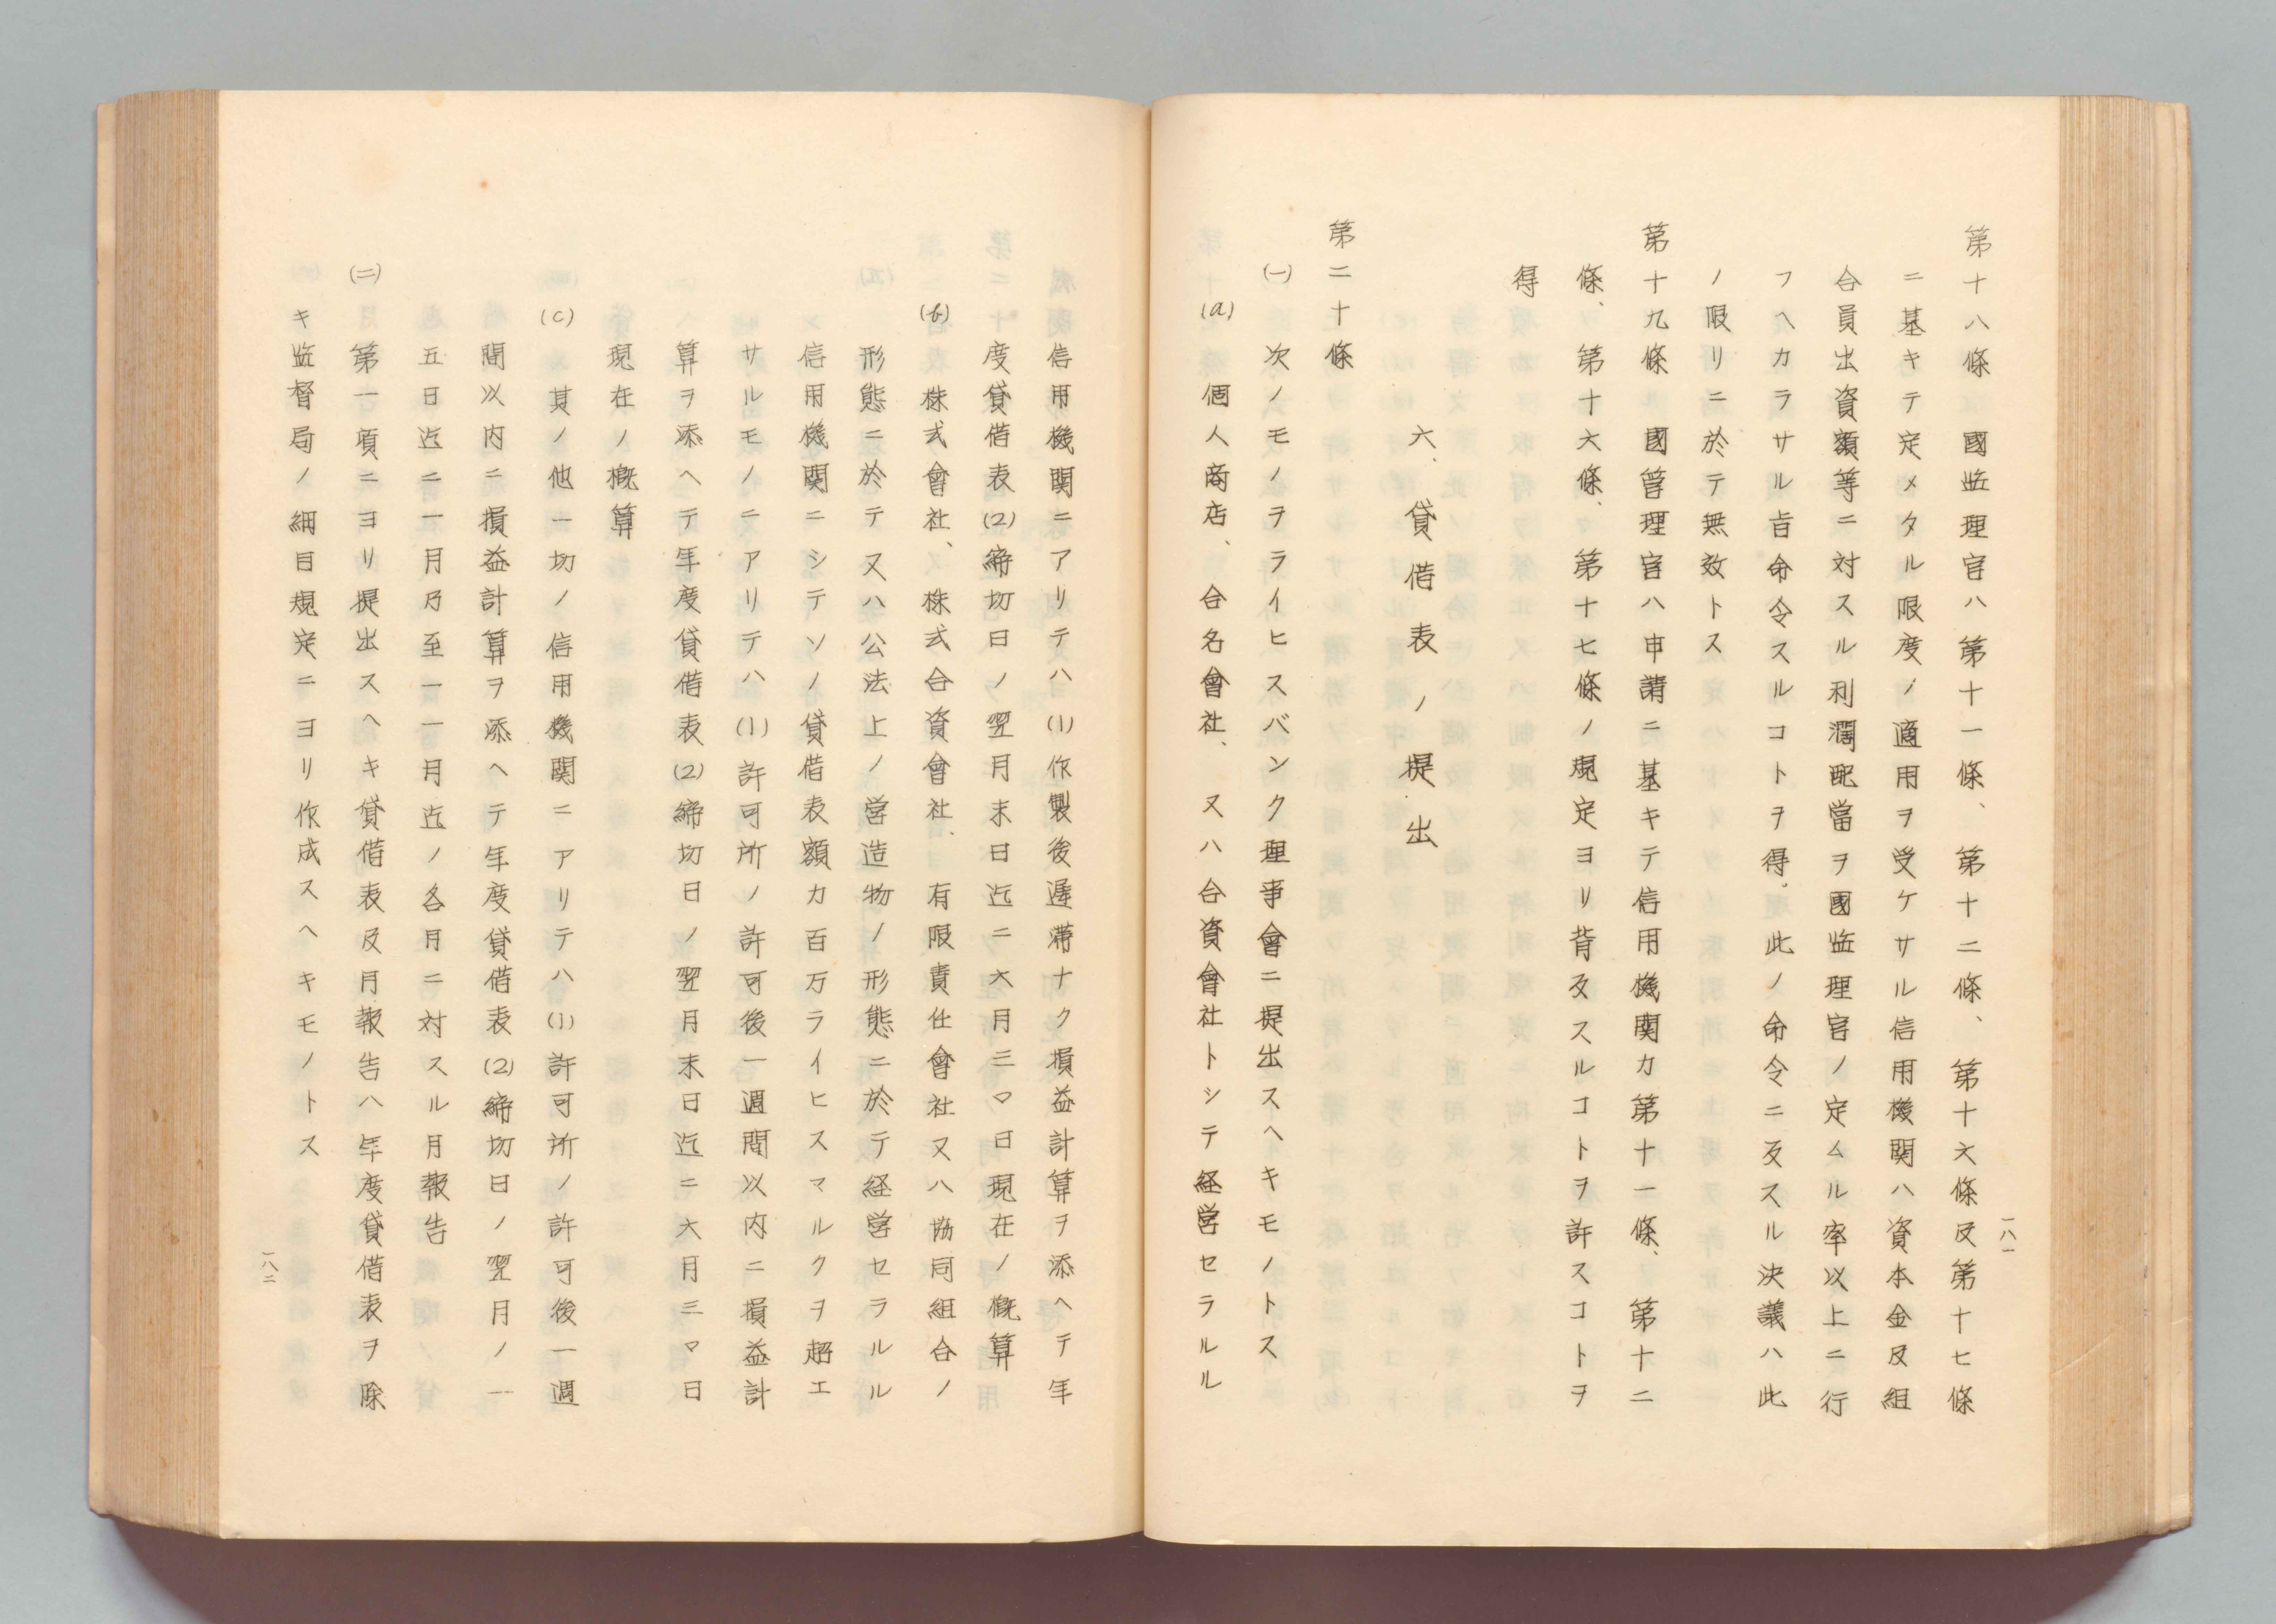 一八一
第十八條　國監理官ハ第十一條、第十二條、第十六條及第十七條
ニ基キテ定メタル限度ノ適用ヲ受ケサル信用機関ハ資本金及組
合員出資額等ニ対スル利潤配當ヲ國監理官ノ定ムル率以上ニ行
フヘカラサル旨命令スルコトヲ得。此ノ命令ニ反スル決議ハ此
ノ限リニ於テ無效トス
第十九條　國管理官ハ申請ニ基キテ信用機関カ第十一條、第十二
條、第十六條、第十七條ノ規定ヨリ背反スルコトヲ許スコトヲ
得
六、貸借表ノ提出
第二十條
(一)　次ノモノヲライヒスバンク理事會ニ提出スヘキモノトス
(a)　個人商店、合名會社、又ハ合資會社トシテ経営セラルル
信用機関ニアリテハ(1)作製後遅滞ナク損益計算ヲ添ヘテ年
度貸借表(2)締切日ノ翌月末日迄ニ六月三〇日現在ノ概算
(b)　株式會社、株式合資會社、有限責任會社又ハ協同組合ノ
形態ニ於テ又ハ公法上ノ営造物ノ形態ニ於テ経営セラルル
信用機関ニシテソノ貸借表額カ百万ライヒスマルクヲ超エ
サルモノニアリテハ(1)許可所ノ許可後一週間以内ニ損益計
算ヲ添ヘテ年度貸借表(2)締切日ノ翌月末日迄ニ六月三〇日
現在ノ概算
(c)　其ノ他一切ノ信用機関ニアリテハ(1)許可所ノ許可後一週
間以内ニ損益計算ヲ添ヘテ年度貸借表(2)締切日ノ翌月ノ一
五日迄ニ一月乃至一一月迄ノ各月ニ対スル月報告
(二)　第一項ニヨリ提出スヘキ貸借表及月報告ハ年度貸借表ヲ除
キ監督局ノ細目規定ニヨリ作成スヘキモノトス
一八二